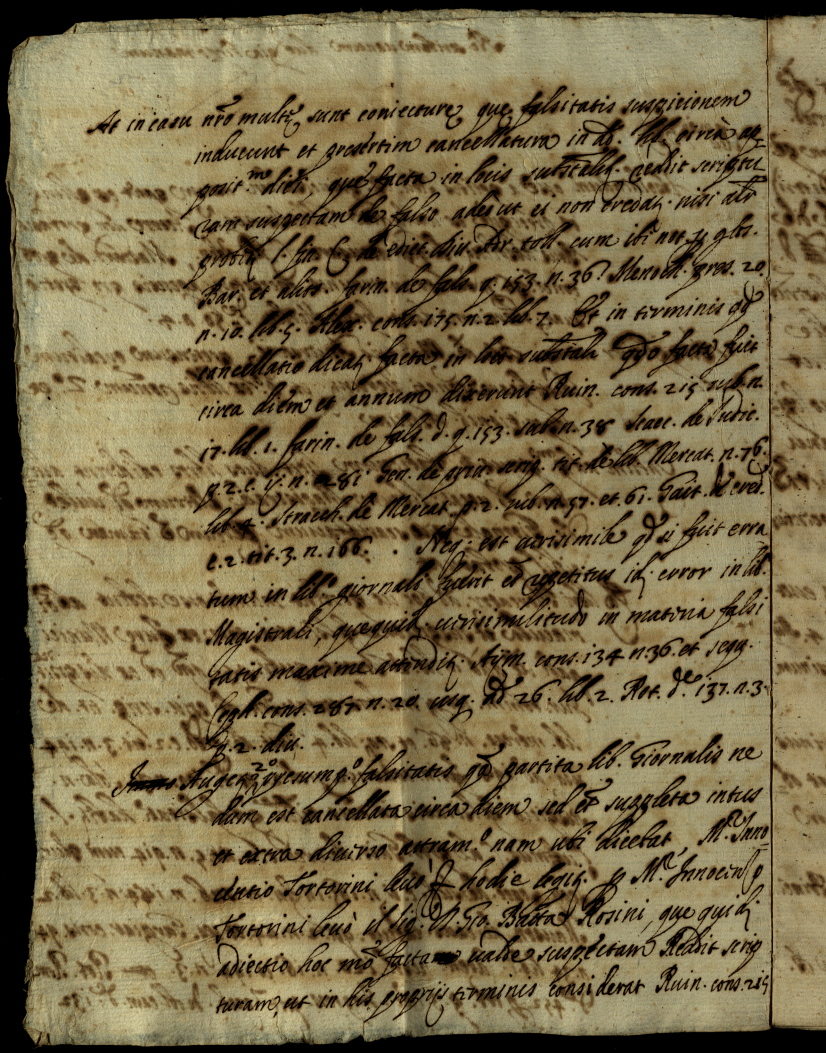 At in casu nrõ multę sunt coniecturę que falsitatis suspicionem
inducunt et presertim cancellatura in dº. lib. circa ap
posit.m diei, que facta in locis substalib. reddit scriptu
ram suspectam de falso adeo ut ei non credat. nisi alr
probet l. fin. C. de edict. diu. Adr. toll. cum ibi not. p gbs.
Bar. et alios. farin. de fals. q. 153. n. 36. Menoch. pres. 20
n. 10. lib. 5. Alex. cons. 175. n. 2. lib. 7. Et in terminis qd
cancellatio dicat. facta in loco substali qdo facta fuit
circa diem et annum dixerunt Ruin. cons. 215 sub n.
17. lib. 1. farin. de fals. d. q. 153. sub. n. 38 Scacc. de Iudic.
p. 2. c. ii. n. 281. Gen. de priu. scrip. tit. de lib. Mercat. n. 76
lib. 4. Stracch. de Mercat. p. 2. sub. n. 57. et. 61. Gait. de cred.
c. 2. tit. 3. n. 166. . Neq. est uerisimile qd si fuit erra
tum in libº giornali fuerit et repetitus id. error in lib.
Magistrali, quequid. uerisimilitudo in materia falsi
tatis maxime attendit. Aym. cons. 134 n. 36. et seqq.
Ceph. cons. 287. n. 20. usq. ad 26. lib. 2. Rot. de. 137. n. 3
p. 2. diu.
Auget 2º suspicium falsitatis qd partita lib. Giornalis ne
dum est cancellata circa diem sed et suppleta intus
et extra diuerso atram.º nam ubi dicebat, M.r Inno
centio Tortorini leuò hodie legit. p M.r Innocen p
Tortorini leuò il sig. D. Gio. Batta Rosini, que quid.
adiectio hoc mõ facta ualde suspectam reddit scrip
turam, ut in his proprijs terminis considerat Ruin. cons. 215